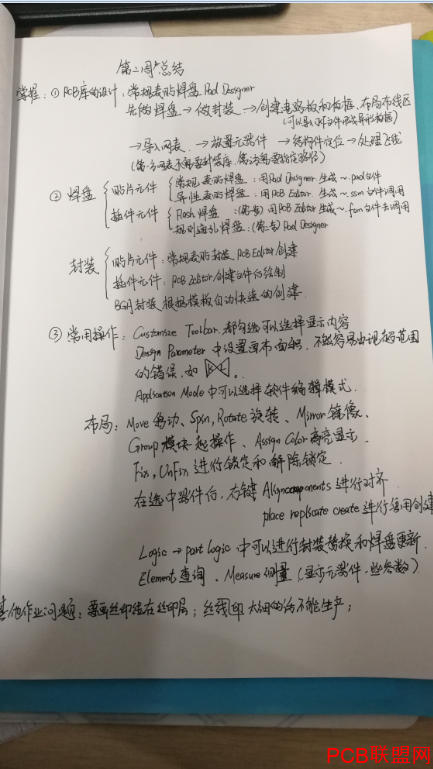 第二周总结
掌握：① PCB库的设计，常规表贴焊盘 Pad Designer
先做焊盘 → 做封装 → 创建电路板和板框、布局布线区
(可以导入DXF文件或手动画板框)
→ 导入网表 → 放置元器件 → 结构件定位 → 处理飞线
② 焊盘
贴片元件
常规表贴焊盘：用Pad Designer 生成~.pad文件
异性表贴焊盘：用PCB Editor 生成~.ssm文件调用
插件元件
Flash 焊盘：(通孔) 用PCB Editor 生成~.fsm文件去调用
规则通孔焊盘：(通孔) Pad Designer
封装
贴片元件：常规表贴封装 PCB Editor创建
插件元件：PCB Editor 创建文件后绘制
BGA封装 根据模板自动快速的创建
③ 常用操作：Customize Toolbar 都勾选可以选择显示内容
Design Parameter 中设置画布面积，不能容易出现超范围
的错误，如
Application Mode 中可以选择软件编辑模式
布局：Move 移动、Spin, Rotate 旋转、Mirror 镜像、
Group 模块一起操作、Assign Color 高亮显示
Fix, UnFix 进行锁定和解除锁定
在选中器件后，右键 Align components 进行对齐
place replicate create 进行复用创建
Logic → part logic 中可以进行封装替换和焊盘更新
Element 查询、Measure 测量 (显示元器件一些参数)
其他作业问题：要画丝印线在丝印层；丝线印太细的话不能生产；
PCB联盟网